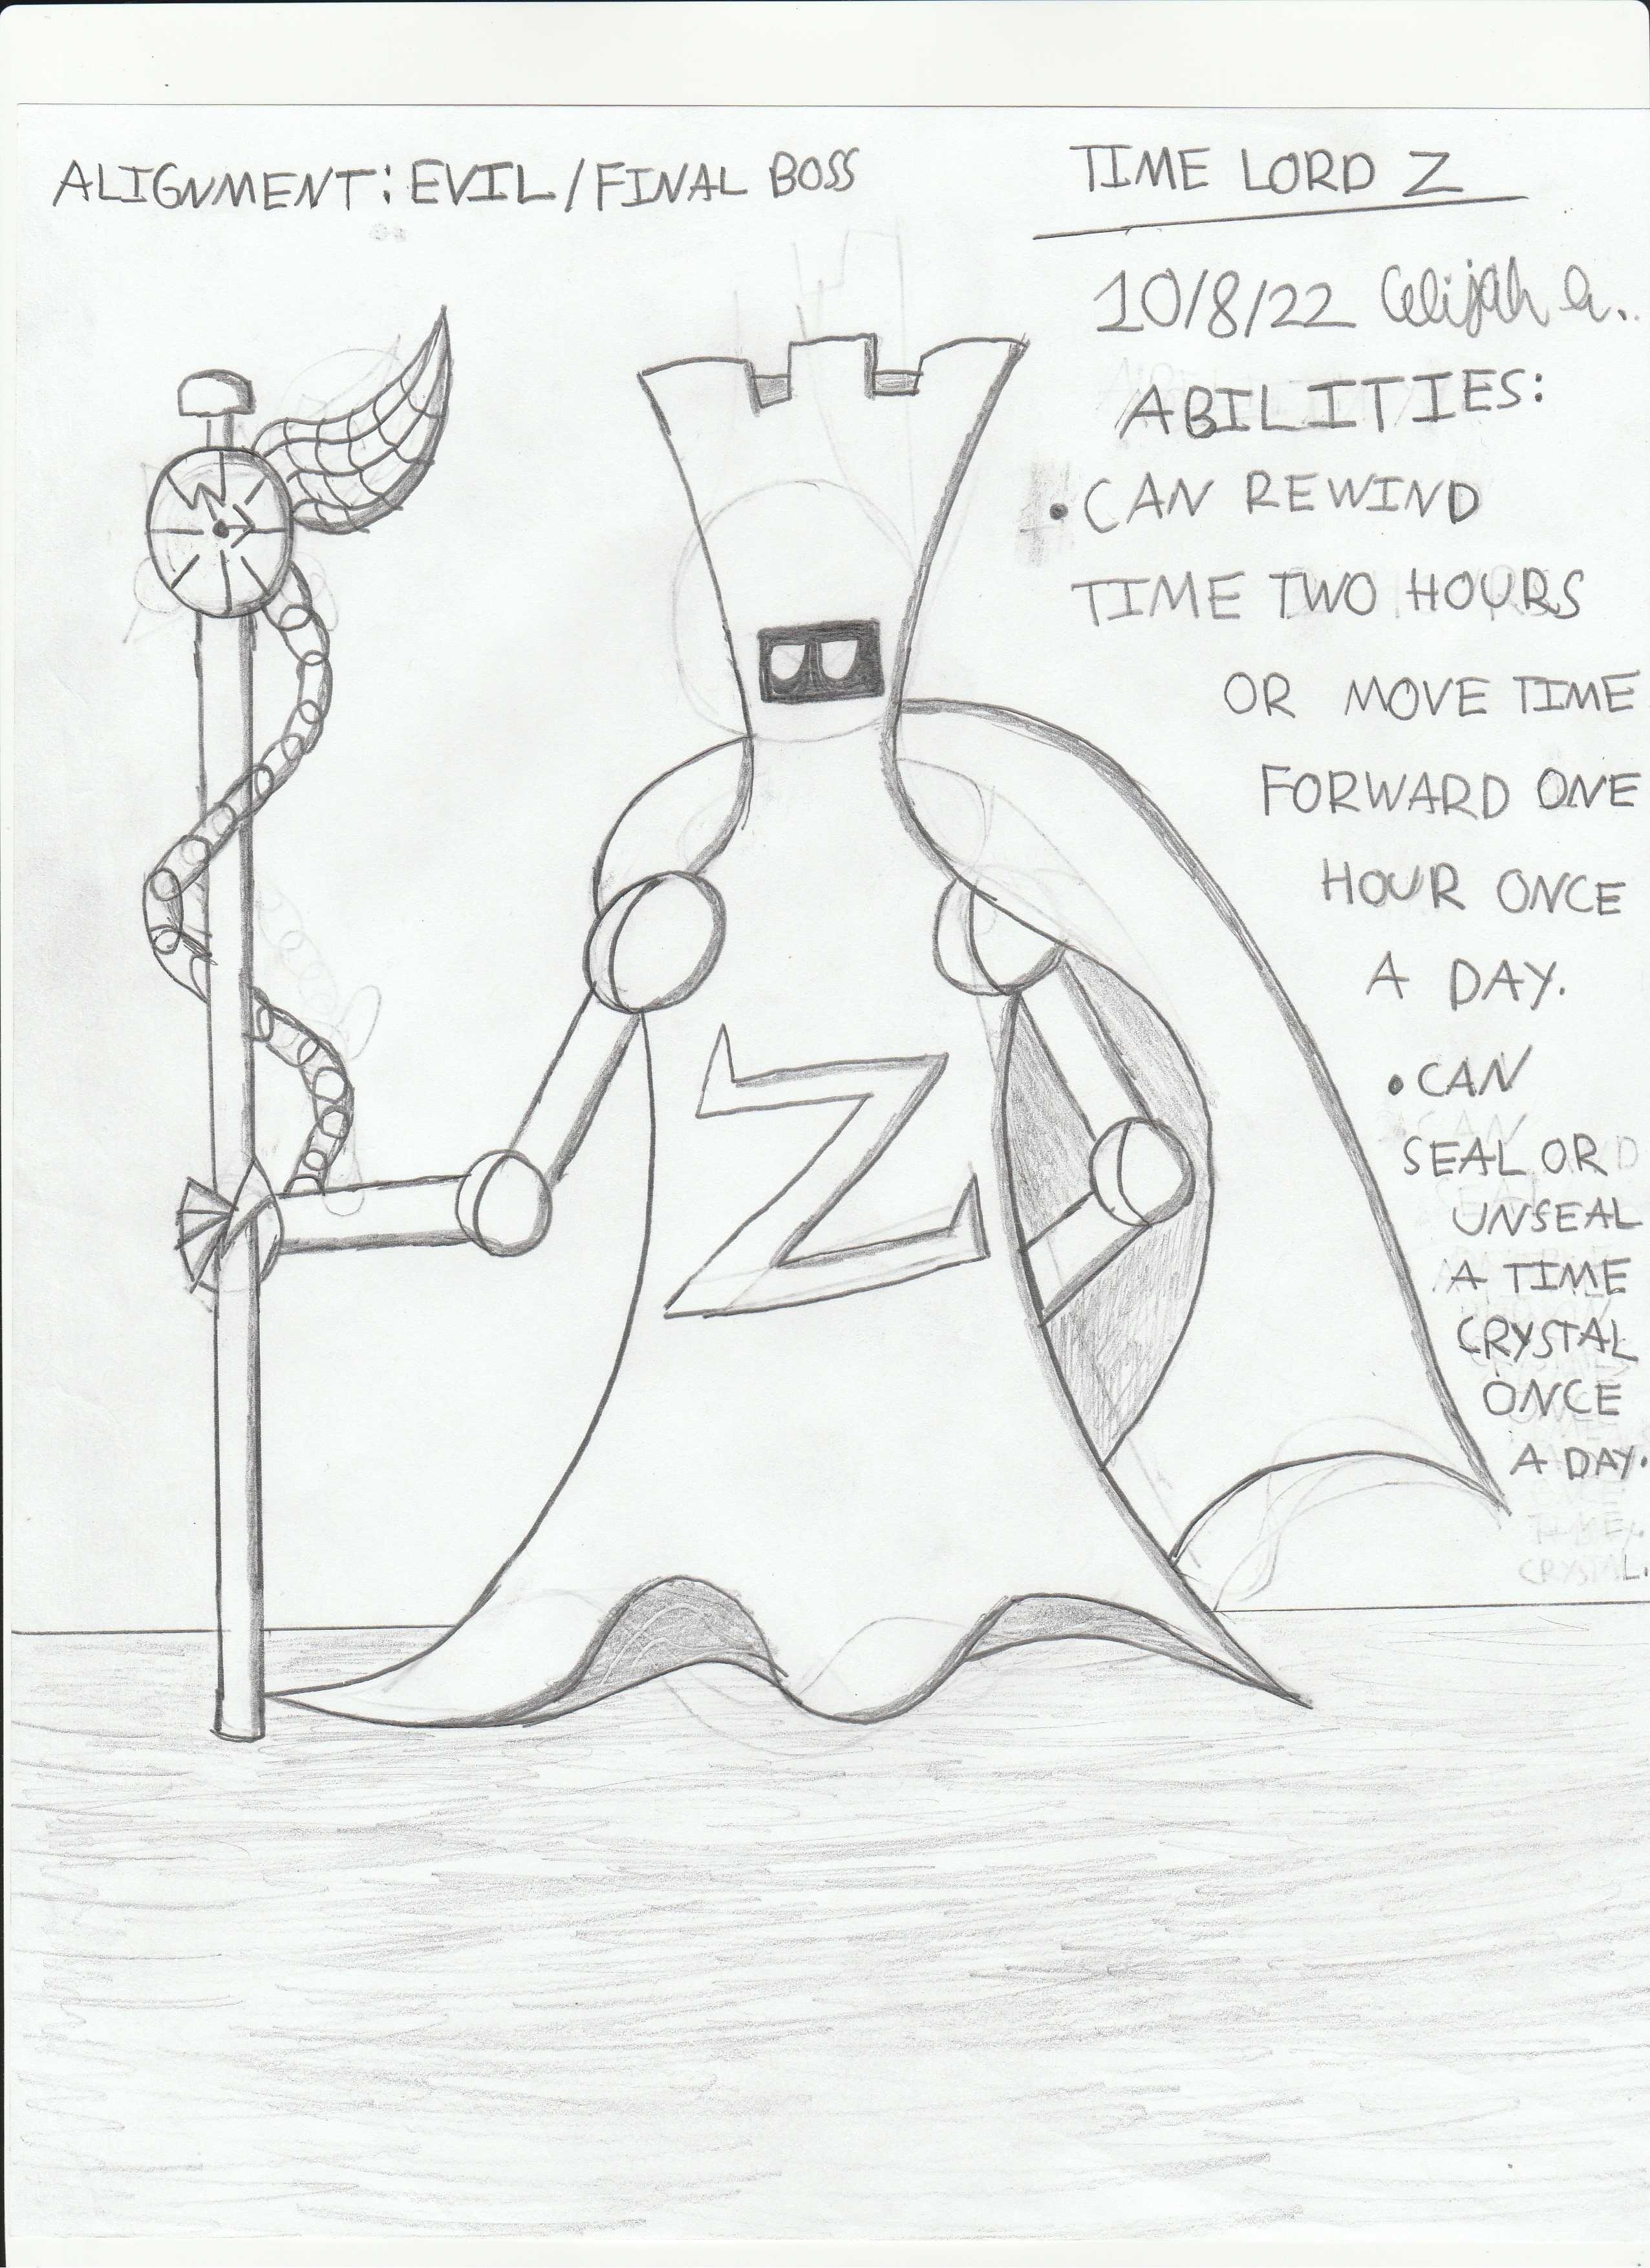 ALIGNMENT: EVIL/FINAL BOSS
TIME LORD Z
10/8/22 Elijah a.
ABILITIES:
• CAN REWIND
TIME TWO HOURS
OR MOVE TIME
FORWARD ONE
HOUR ONCE
A DAY.
• CAN
SEAL OR
UNSEAL
A TIME
CRYSTAL
ONCE
A DAY.
Z